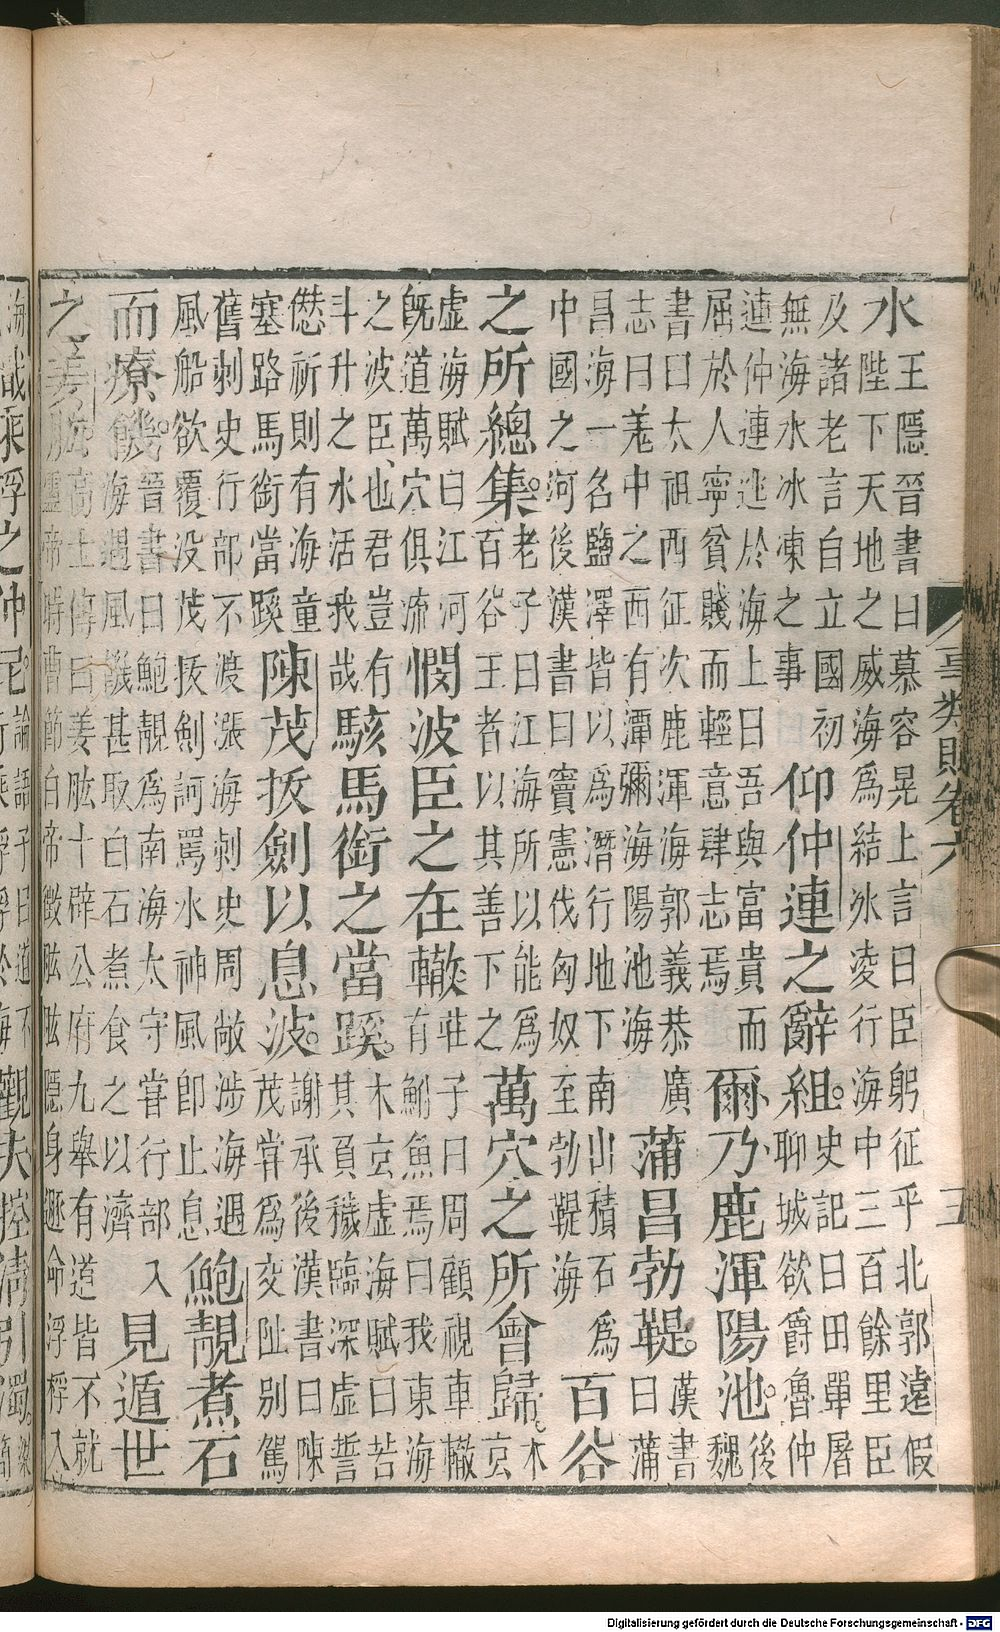 事類賦卷六
五
水
王隱晉書曰慕容晃上言曰臣躬征乎北郭遠假
陛下天地之威海為結氷凌行海中三百餘里臣
及諸老言自立國初
無海水冰凍之事
仰仲連之辭組。
史記曰田單屠
聊城欲爵魯仲
連仲連逃於海上曰吾與富貴而
屈於人寧貧賤而輕意肆志焉
爾乃鹿渾陽池。
後
魏
書曰太祖西征次鹿渾海郭義恭廣
志曰羗中之西有潭彌海陽池海
蒲昌勃鞮。
漢書
曰蒲
昌海一名鹽澤皆以為潛行地下南山積石為
中國之河後漢書曰竇憲伐匈奴至勃鞮海
百谷
之所總集。
老子曰江海所以能為
百谷王者以其善下之
萬穴之所會歸。
木
玄
虛海賦曰江河
旣道萬穴俱流
憫波臣之在轍
莊子曰周顧視車轍
有鮒魚焉曰我東海
之波臣也君豈有
斗升之水活我哉
駭馬銜之當蹊。
木玄虛海賦曰若
其負穢臨深虛誓
愆祈則有海童
塞路馬銜當蹊
陳茂拔劍以息波。
謝承後漢書曰陳
茂嘗為交阯別駕
舊刺史行部不渡漲海刺史周敞涉海遇
風船欲覆没茂拔劍訶罵水神風即止息
鮑靚煮石
而療饑。
晉書曰鮑靚為南海太守嘗行部入
海遇風饑甚取白石煮食之以濟
見遁世
之姜肱
高士傳曰姜肱十辟公府九舉有道皆不就
靈帝時曹節白帝徵肱肱隱身遯命浮桴入
海
乘桴之仲尼。
論語子曰道不
行乘桴浮於海
觀夫控清引濁。
Digitalisierung gefördert durch die Deutsche Forschungsgemeinschaft - DFG